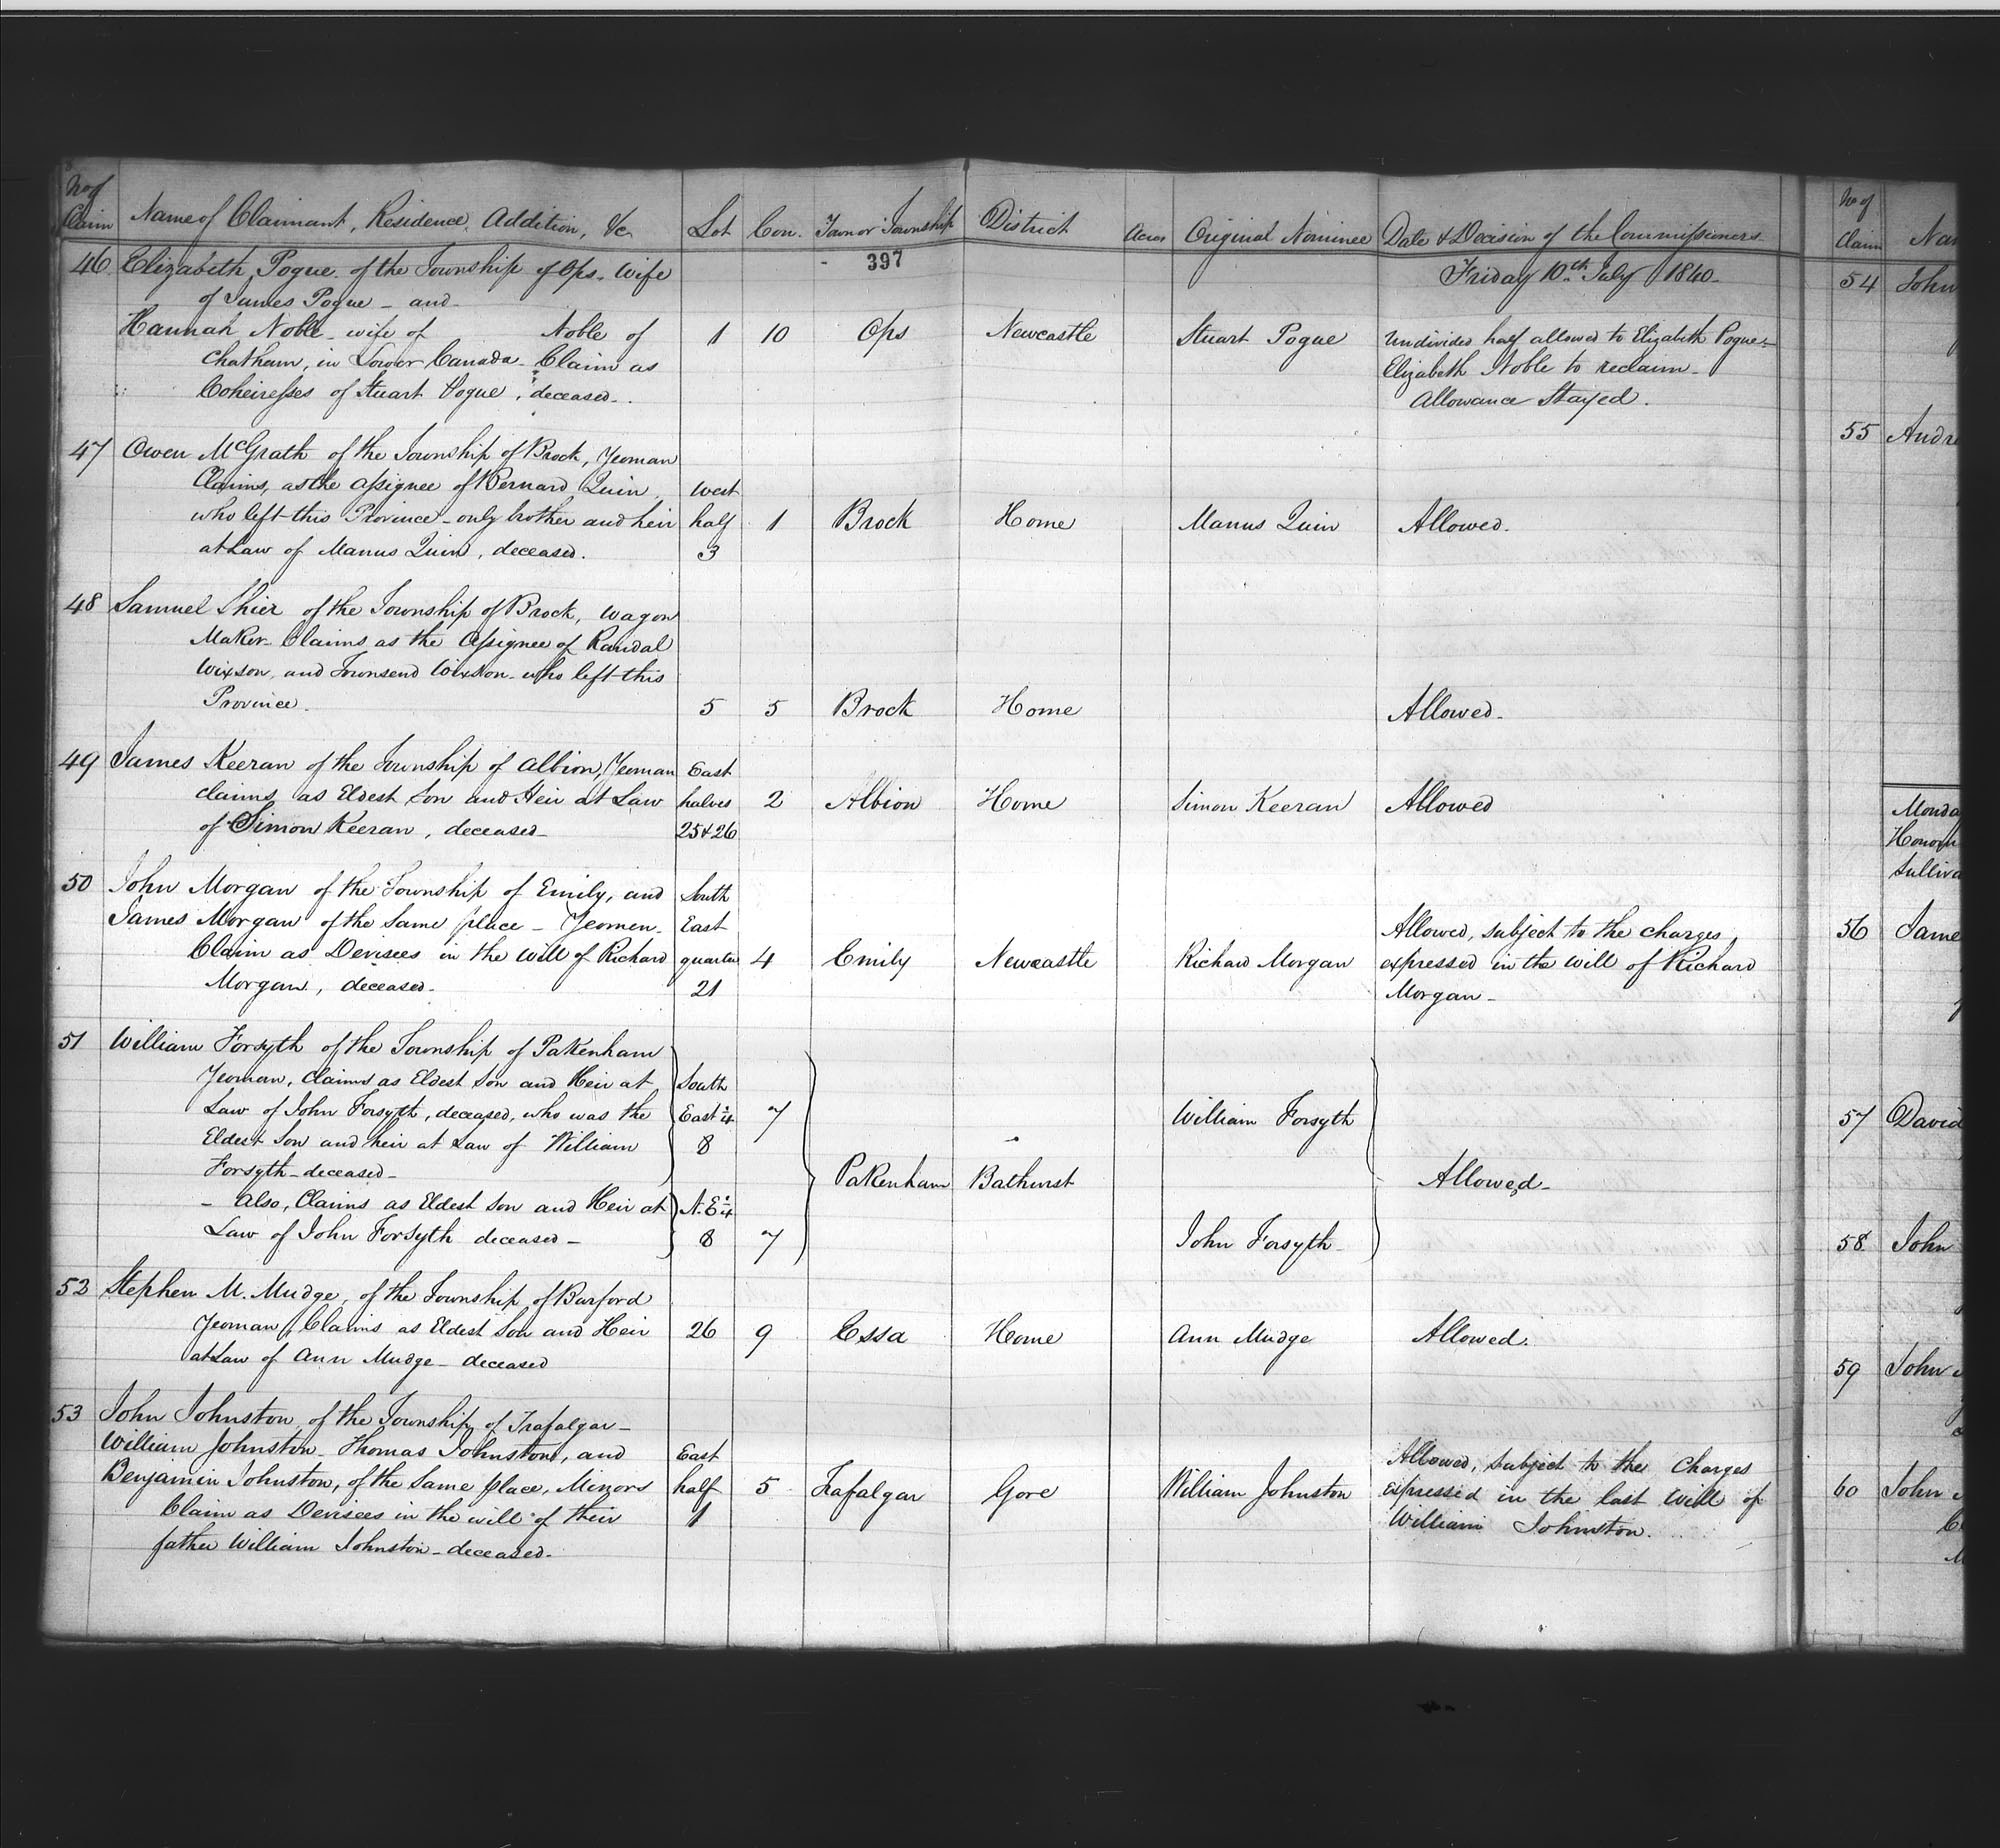 No of Claim | Name of Claimant, Residence, Addition, &c | Lot | Con. | Town or Township | District | Acres | Original Nominee | Date & Decision of the Commissioners
397
Friday 10th July 1840
46 Elizabeth Pogue of the Township of Ops - Wife
of James Pogue - and
Hannah Noble - wife of Noble of | 1 | 10 | Ops | Newcastle | Stuart Pogue | Undivided half allowed to Elizabeth Pogue -
Chatham, in Lower Canada - Claim as | Elizabeth Noble to reclaim -
Coheiresses of Stuart Pogue, deceased - | Allowance Stayed.
47 Owen McGrath of the Township of Brock, Yeoman
Claims, as the Assignee of Bernard Quin, | West
who left this Province - only brother and heir | half | 1 | Brock | Home | Manus Quin | Allowed.
at Law of Manus Quin, deceased. | 3
48 Samuel Shier of the Township of Brock, Wagon
Maker - Claims as the Assignee of Randal
Wixson, and Townsend Wixson - who left this
Province. | 5 | 5 | Brock | Home | Allowed -
49 James Keeran of the Township of Albion, Yeoman | East
claims as Eldest Son and Heir at Law | halves | 2 | Albion | Home | Simon Keeran | Allowed
of Simon Keeran, deceased - | 25 & 26
50 John Morgan of the Township of Emily, and | South
James Morgan of the Same place - Yeomen - | East | Allowed, subject to the charges
Claim as Devisees in the Will of Richard | quarter | 4 | Emily | Newcastle | Richard Morgan | expressed in the Will of Richard
Morgan, deceased - | 21 | Morgan -
51 William Forsyth of the Township of Pakenham
Yeoman, Claims as Eldest Son and Heir at | South
Law of John Forsyth, deceased, who was the | East ¼ | 7 | William Forsyth
Eldest Son and heir at Law of William | 8
Forsyth - deceased - | Pakenham | Bathurst | Allowed -
- Also, Claims as Eldest Son and Heir at | N. E ¼
Law of John Forsyth deceased - | 8 | 7 | John Forsyth
52 Stephen M. Mudge, of the Township of Burford
Yeoman, Claims as Eldest Son and Heir | 26 | 9 | Essa | Home | Ann Mudge | Allowed.
at Law of Ann Mudge - deceased
53 John Johnston, of the Township of Trafalgar -
William Johnston - Thomas Johnston, and | East | Allowed, subject to the Charges
Benjamin Johnston, of the Same place, Minors | half | 5 | Trafalgar | Gore | William Johnston | expressed in the last Will of
Claim as Devisees in the will of their | 1 | William Johnston.
father William Johnston - deceased -
No of Claim
54 John
55
Monday
56
57 David
58 John
59 John
60 John